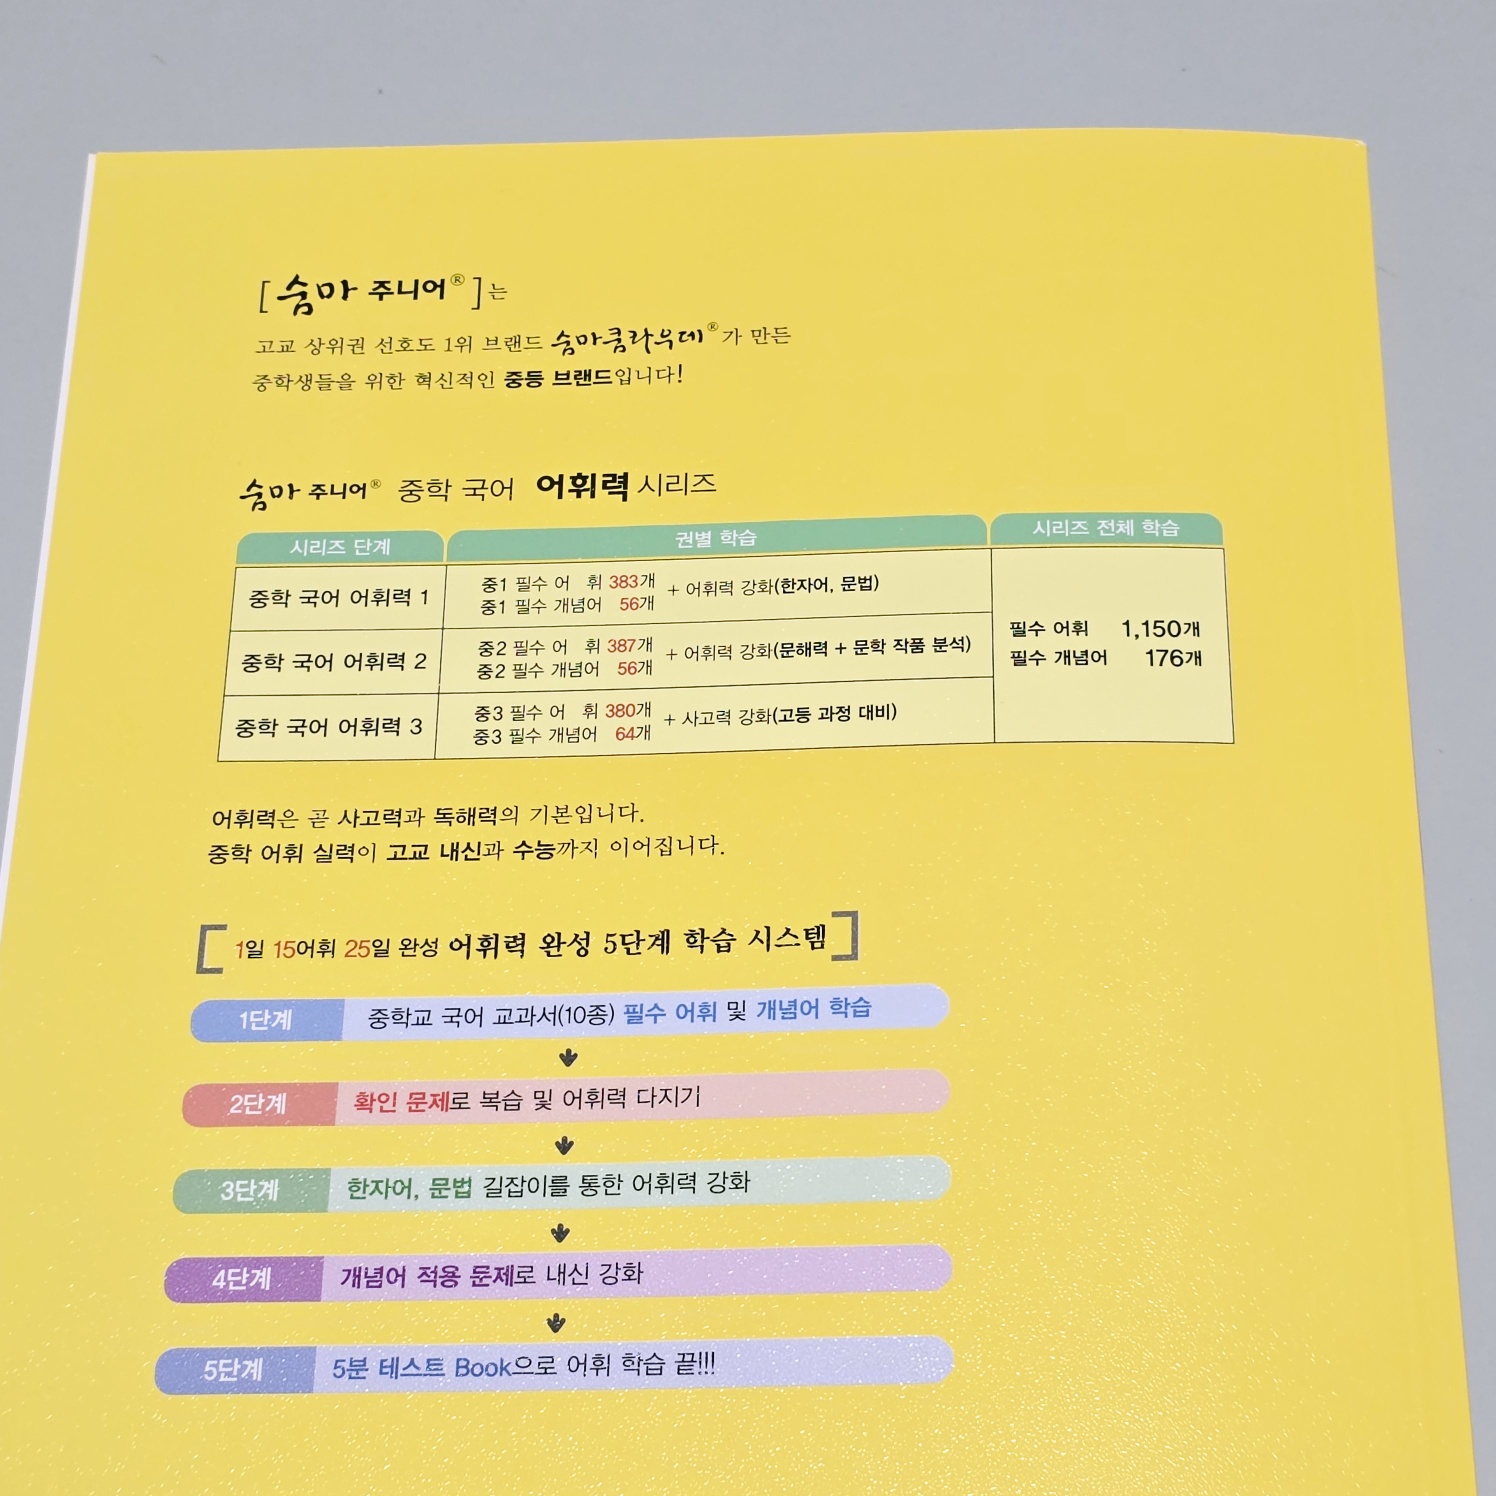 [숨마 주니어®]는
고교 상위권 선호도 1위 브랜드 숨마쿰라우데®가 만든
중학생들을 위한 혁신적인 중등 브랜드입니다!
숨마 주니어® 중학 국어 어휘력 시리즈
시리즈 단계 권별 학습 시리즈 전체 학습
중학 국어 어휘력 1
중1 필수 어 휘 383개
중1 필수 개념어 56개
+ 어휘력 강화(한자어, 문법)
중학 국어 어휘력 2
중2 필수 어 휘 387개
중2 필수 개념어 56개
+ 어휘력 강화(문해력 + 문학 작품 분석)
중학 국어 어휘력 3
중3 필수 어 휘 380개
중3 필수 개념어 64개
+ 사고력 강화(고등 과정 대비)
필수 어휘 1,150개
필수 개념어 176개
어휘력은 곧 사고력과 독해력의 기본입니다.
중학 어휘 실력이 고교 내신과 수능까지 이어집니다.
[1일 15어휘 25일 완성 어휘력 완성 5단계 학습 시스템]
1단계 중학교 국어 교과서(10종) 필수 어휘 및 개념어 학습
2단계 확인 문제로 복습 및 어휘력 다지기
3단계 한자어, 문법 길잡이를 통한 어휘력 강화
4단계 개념어 적용 문제로 내신 강화
5단계 5분 테스트 Book으로 어휘 학습 끝!!!